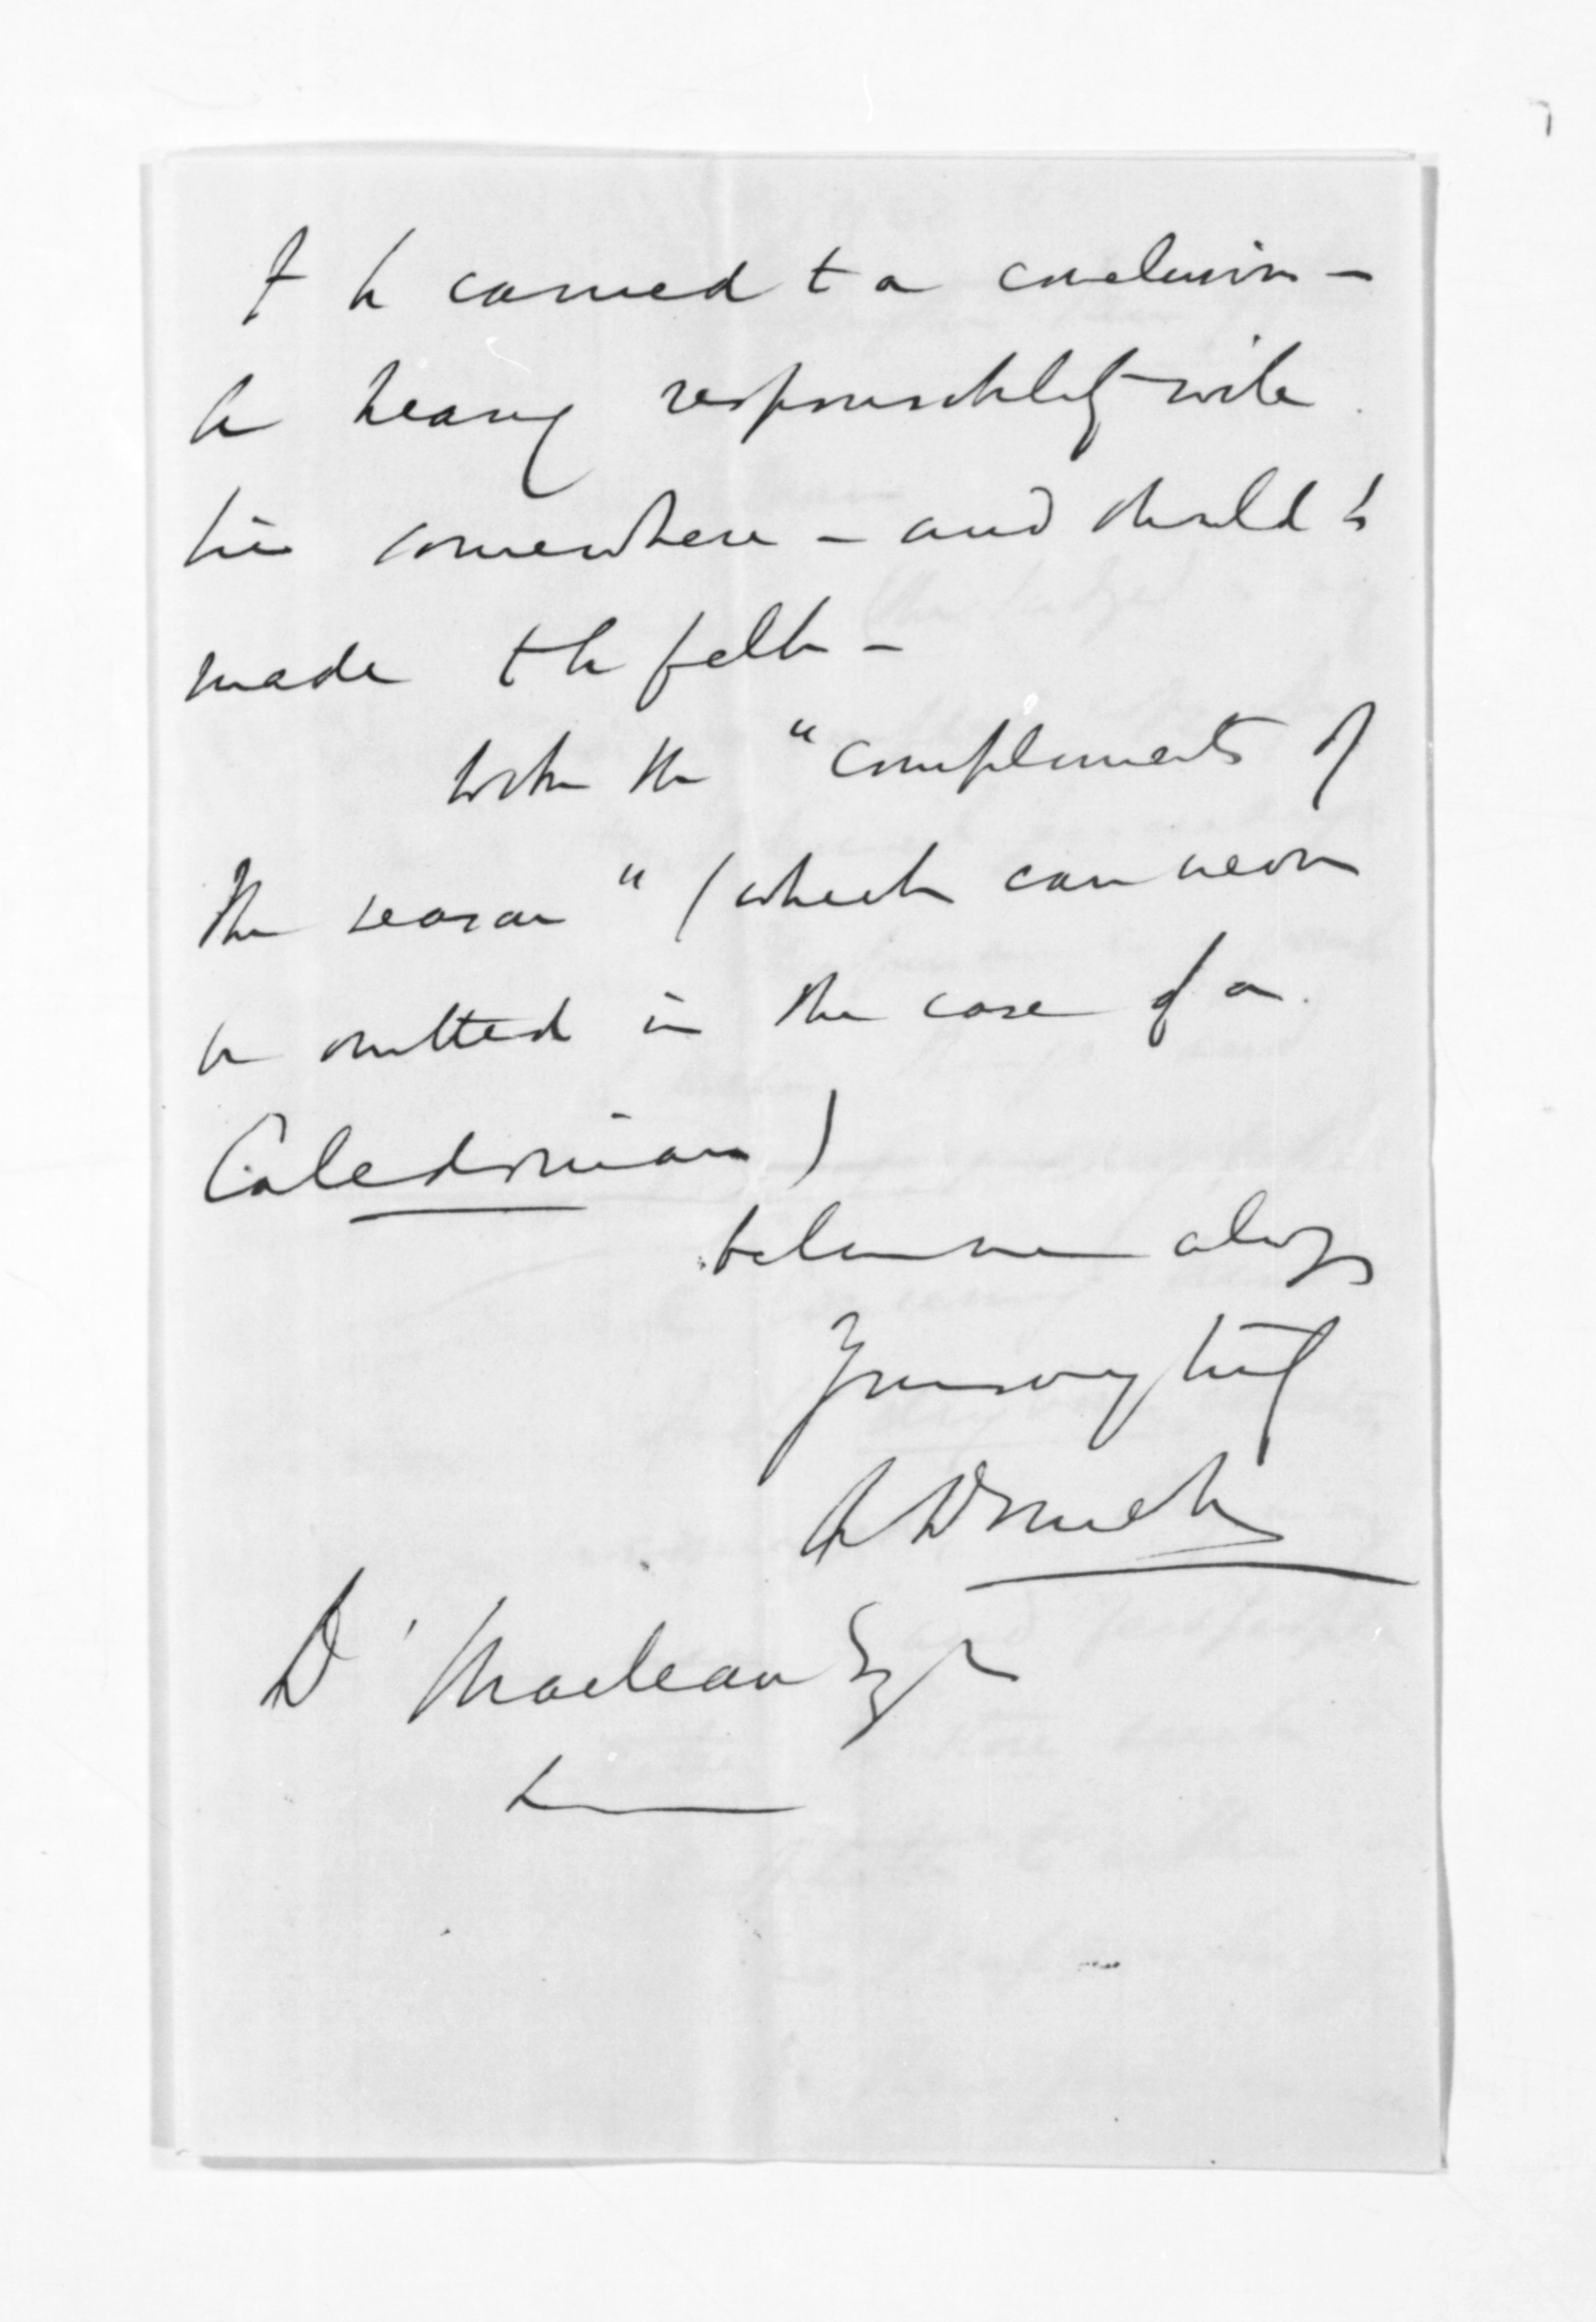 to be carried to a conclusion -
a heavy responsibility will
lie somewhere - and should be
made to be felt -
With the "compliments of
the season" (which can never
be omitted in the case of a
Caledonian)
believe me always
Yours very truly
D. Maclean Esqr